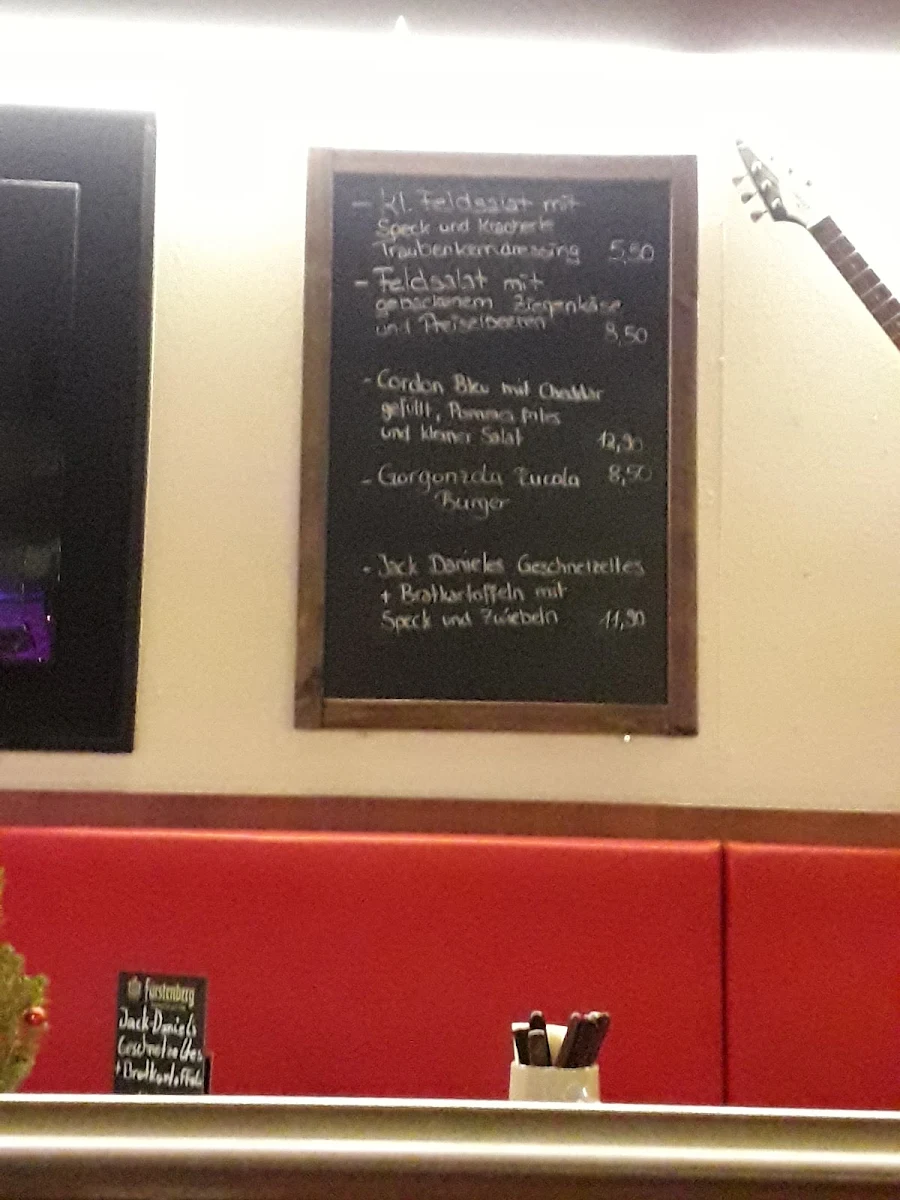 - kl. Feldsalat mit
Speck und Kracherle
Traubenkerndressing 5,50
- Feldsalat mit
gebackenem Ziegenkäse
und Preiselbeeren 8,50
- Cordon Bleu mit Cheddar
gefüllt, Pommes frites
und kleiner Salat 12,90
- Gorgonzola Rucola 8,50
Burger
- Jack Danieles Geschnetzeltes
+ Bratkartoffeln mit
Speck und Zwiebeln 11,90
Fürstenberg
Jack-Daniels
Geschnetzeltes
+ Bratkartoffeln